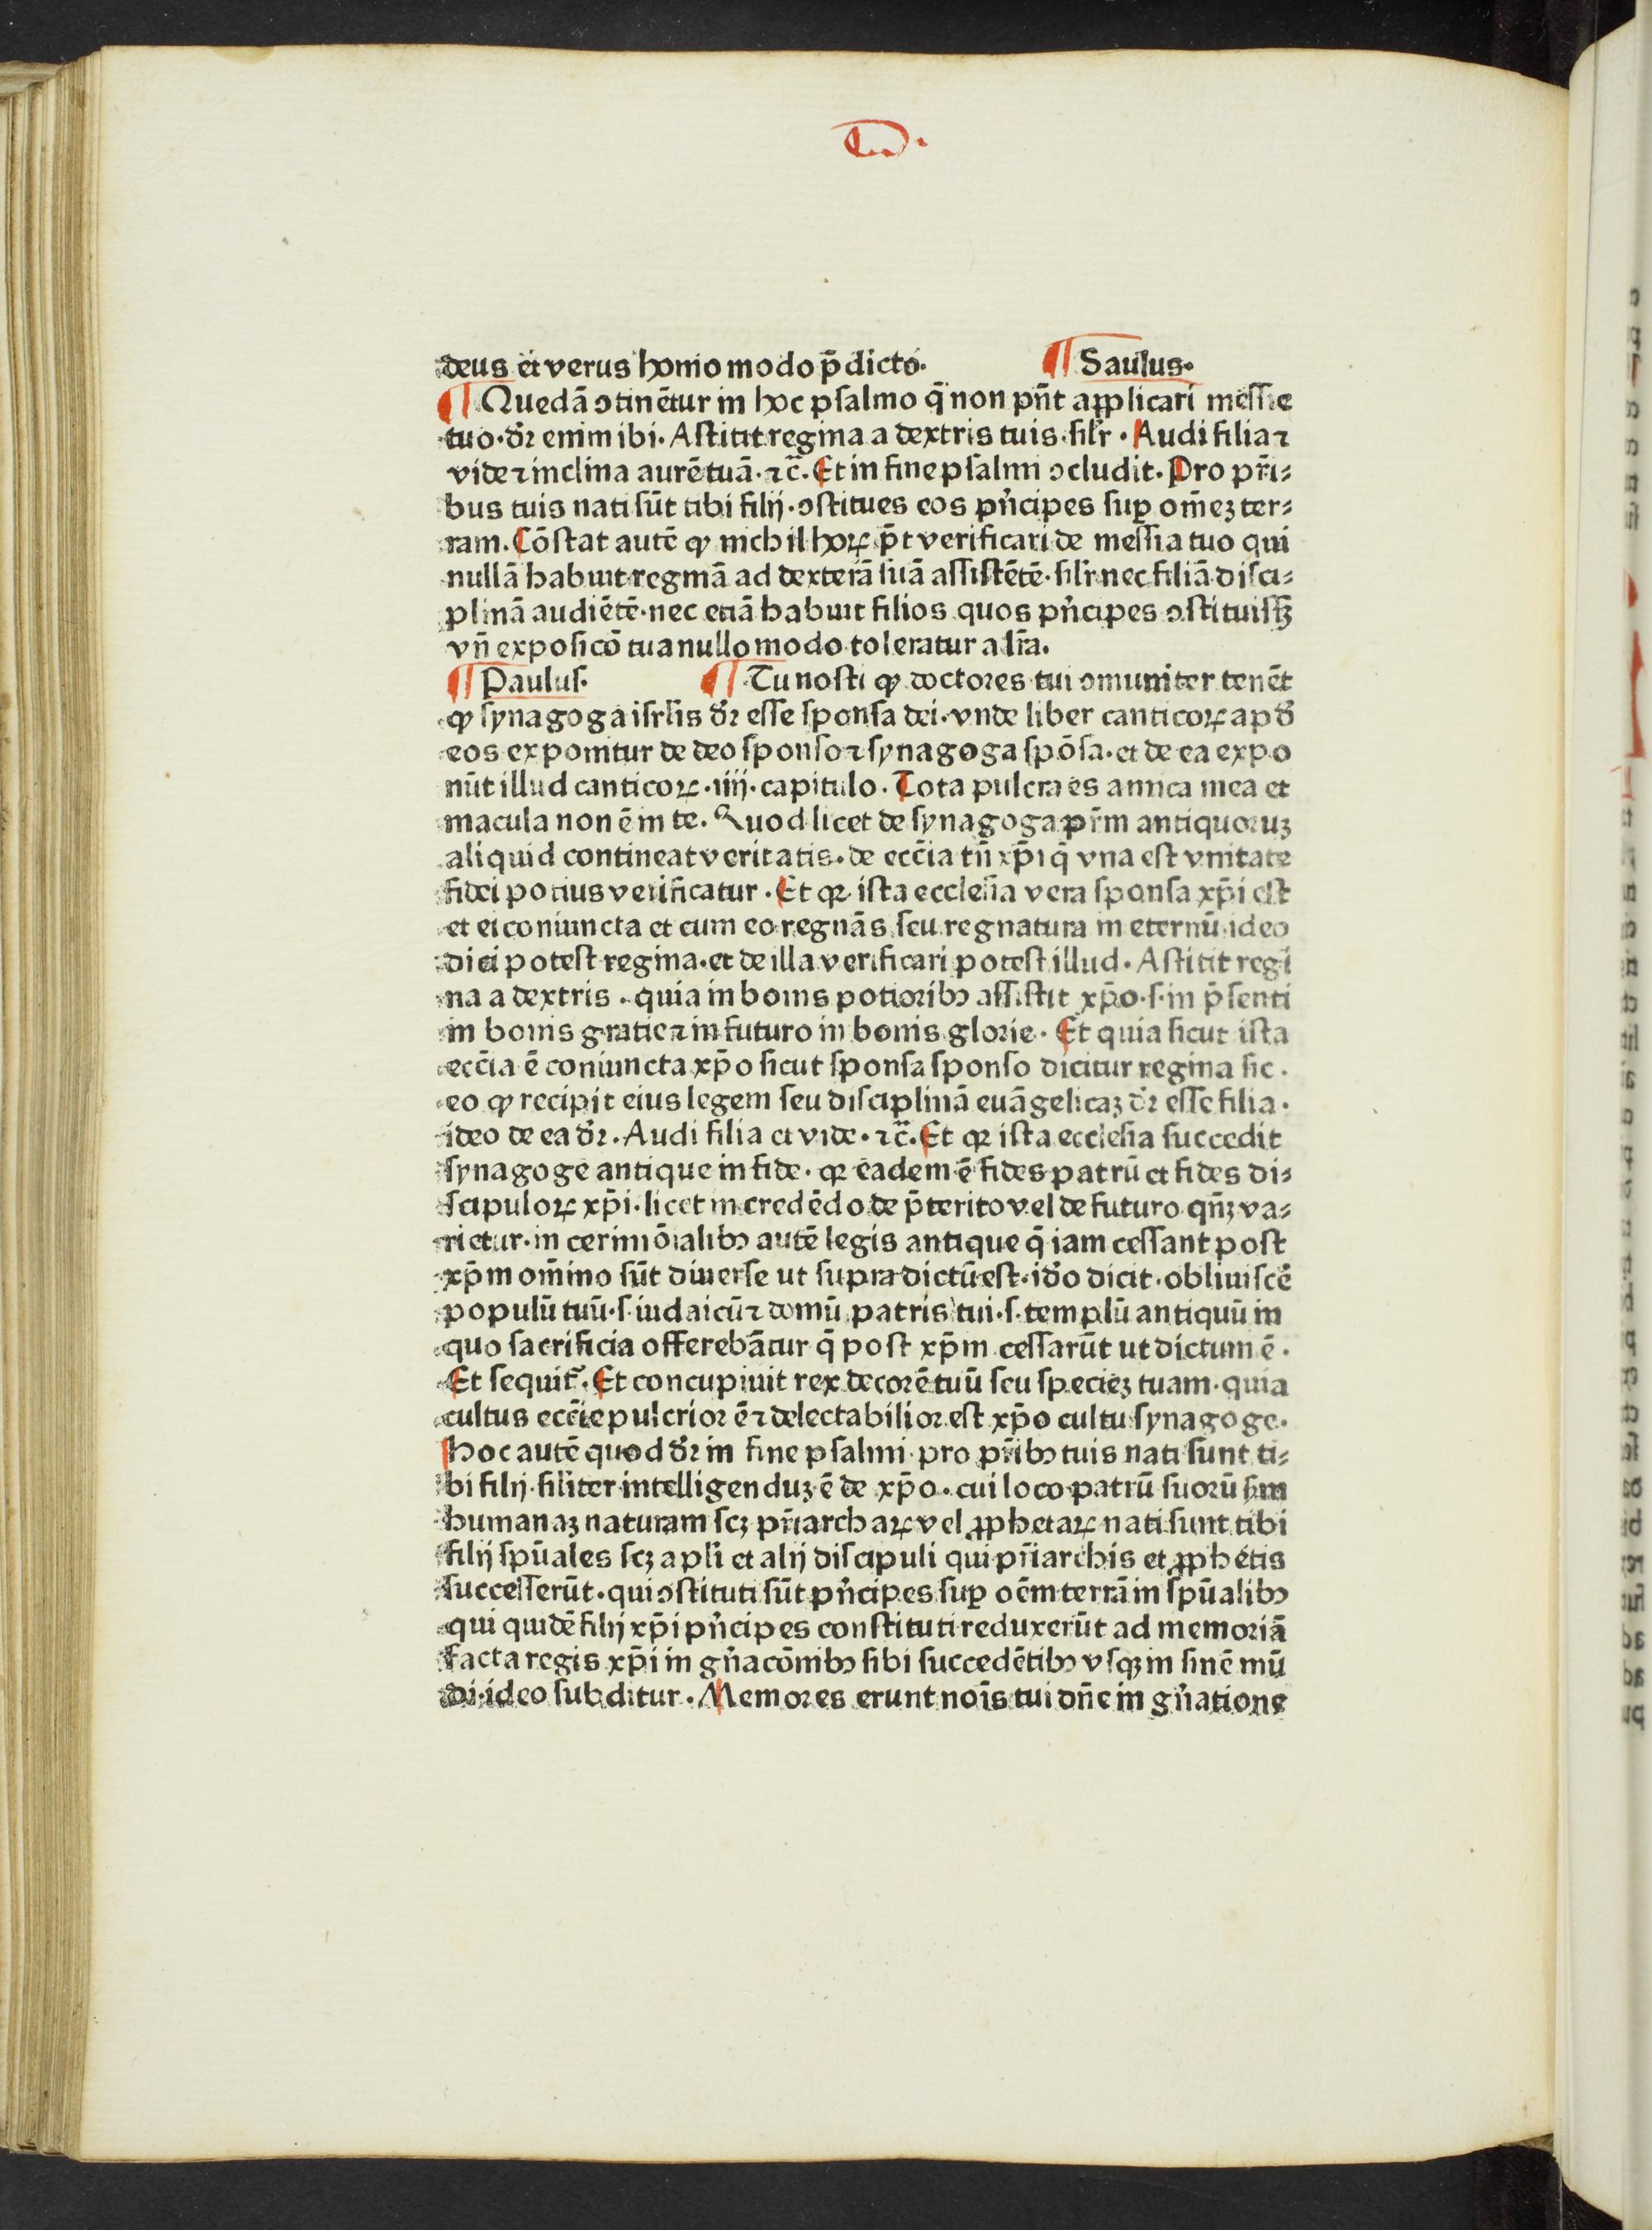 D.
deus et verus homo modo p̄dicto. ¶ Saulus.
¶ Quedā ↄtinētur in hoc psalmo q̄ non pn̄t applicari messie
tuo. dr̄ enim ibi. Astitit regina a dextris tuis. silr̄. Audi filia ⁊
vide ⁊ inclina aurē tuā. ⁊c̄. Et in fine psalmi ↄcludit. Pro pr̄i⸗
bus tuis nati sūt tibi filij. ↄstitues eos pn̄cipes suꝑ om̄eȝ ter⸗
ram. Cōstat autē ꝙ nichil hoꝝ p̄t verificari de messia tuo qui
nullā habuit reginā ad dexterā suā assistētē. silr̄ nec filiā disci⸗
plinā audiētē. nec etiā habuit filios quos pn̄cipes ↄstituissꝫ
vn̄ exposicō tua nullo modo toleratur a lr̄a.
¶ Paulus. ¶ Tu nosti ꝙ doctores tui ↄmuniter tenēt
ꝙ synagoga isrl̄is dr̄ esse sponsa dei. vnde liber canticoꝝ apd̄
eos exponitur de deo sponso ⁊ synagoga spōsa. et de ea expo
nūt illud canticoꝝ. iiij. capitulo. Tota pulcra es amica mea et
macula non ē in te. Quod licet de synagoga pr̄m antiquoruȝ
aliquid contineat veritatis. de ecc̄ia tn̄ xp̄i q̄ vna est vnitate
fidei potius verificatur. Et qꝛ ista ecclesia vera sponsa xp̄i est
et ei coniuncta et cum eo regnās seu regnatura in eternū ideo
dici potest regina. et de illa verificari potest illud. Astitit regi
na a dextris. quia in bonis potioribꝰ assistit xp̄o. s. in p̄senti
in bonis gratie ⁊ in futuro in bonis glorie. Et quia sicut ista
ecc̄ia ē coniuncta xp̄o sicut sponsa sponso dicitur regina sic.
eo ꝙ recipit eius legem seu disciplinā euāgelicaȝ dr̄ esse filia.
ideo de ea dr̄. Audi filia et vide. ⁊c̄. Et qꝛ ista ecclesia succedit
synagoge antique in fide. qꝛ eadem ē fides patrū et fides di⸗
scipuloꝝ xp̄i. licet in credēdo de p̄terito vel de futuro qn̄ȝ va⸗
rietur. in cerimōialibꝰ autē legis antique q̄ iam cessant post
xp̄m om̄ino sūt diuerse ut supra dictū est. id̄o dicit. obliuiscē
populū tuū. s. iudaicū ⁊ domū patris tui. s. templū antiquū in
quo sacrificia offerebātur q̄ post xp̄m cessarūt ut dictum ē.
Et sequit᷑. Et concupiuit rex decorē tuū seu specieȝ tuam. quia
cultus ecc̄ie pulcrior ē ⁊ delectabilior est xp̄o cultu synagoge.
Hoc autē quod dr̄ in fine psalmi. pro pr̄ibꝰ tuis nati sunt ti⸗
bi filij. siliter intelligenduȝ ē de xp̄o. cui loco patrū suorū sm̄
humanaȝ naturam scȝ pr̄iarchaꝝ vel ꝓphetaꝝ nati sunt tibi
filij spūales scȝ apl̄i et alij discipuli qui pr̄iarchis et ꝓphetis
successerūt. qui ↄstituti sūt pn̄cipes suꝑ oēm terrā in spūalibꝰ
qui quidē filij xp̄i pn̄cipes constituti reduxerūt ad memoriā
facta regis xp̄i in gn̄acōnibꝰ sibi succedētibꝰ vsqȝ in finē mū
di. ideo subditur. Memores erunt nois̄ tui dn̄e in gn̄atione